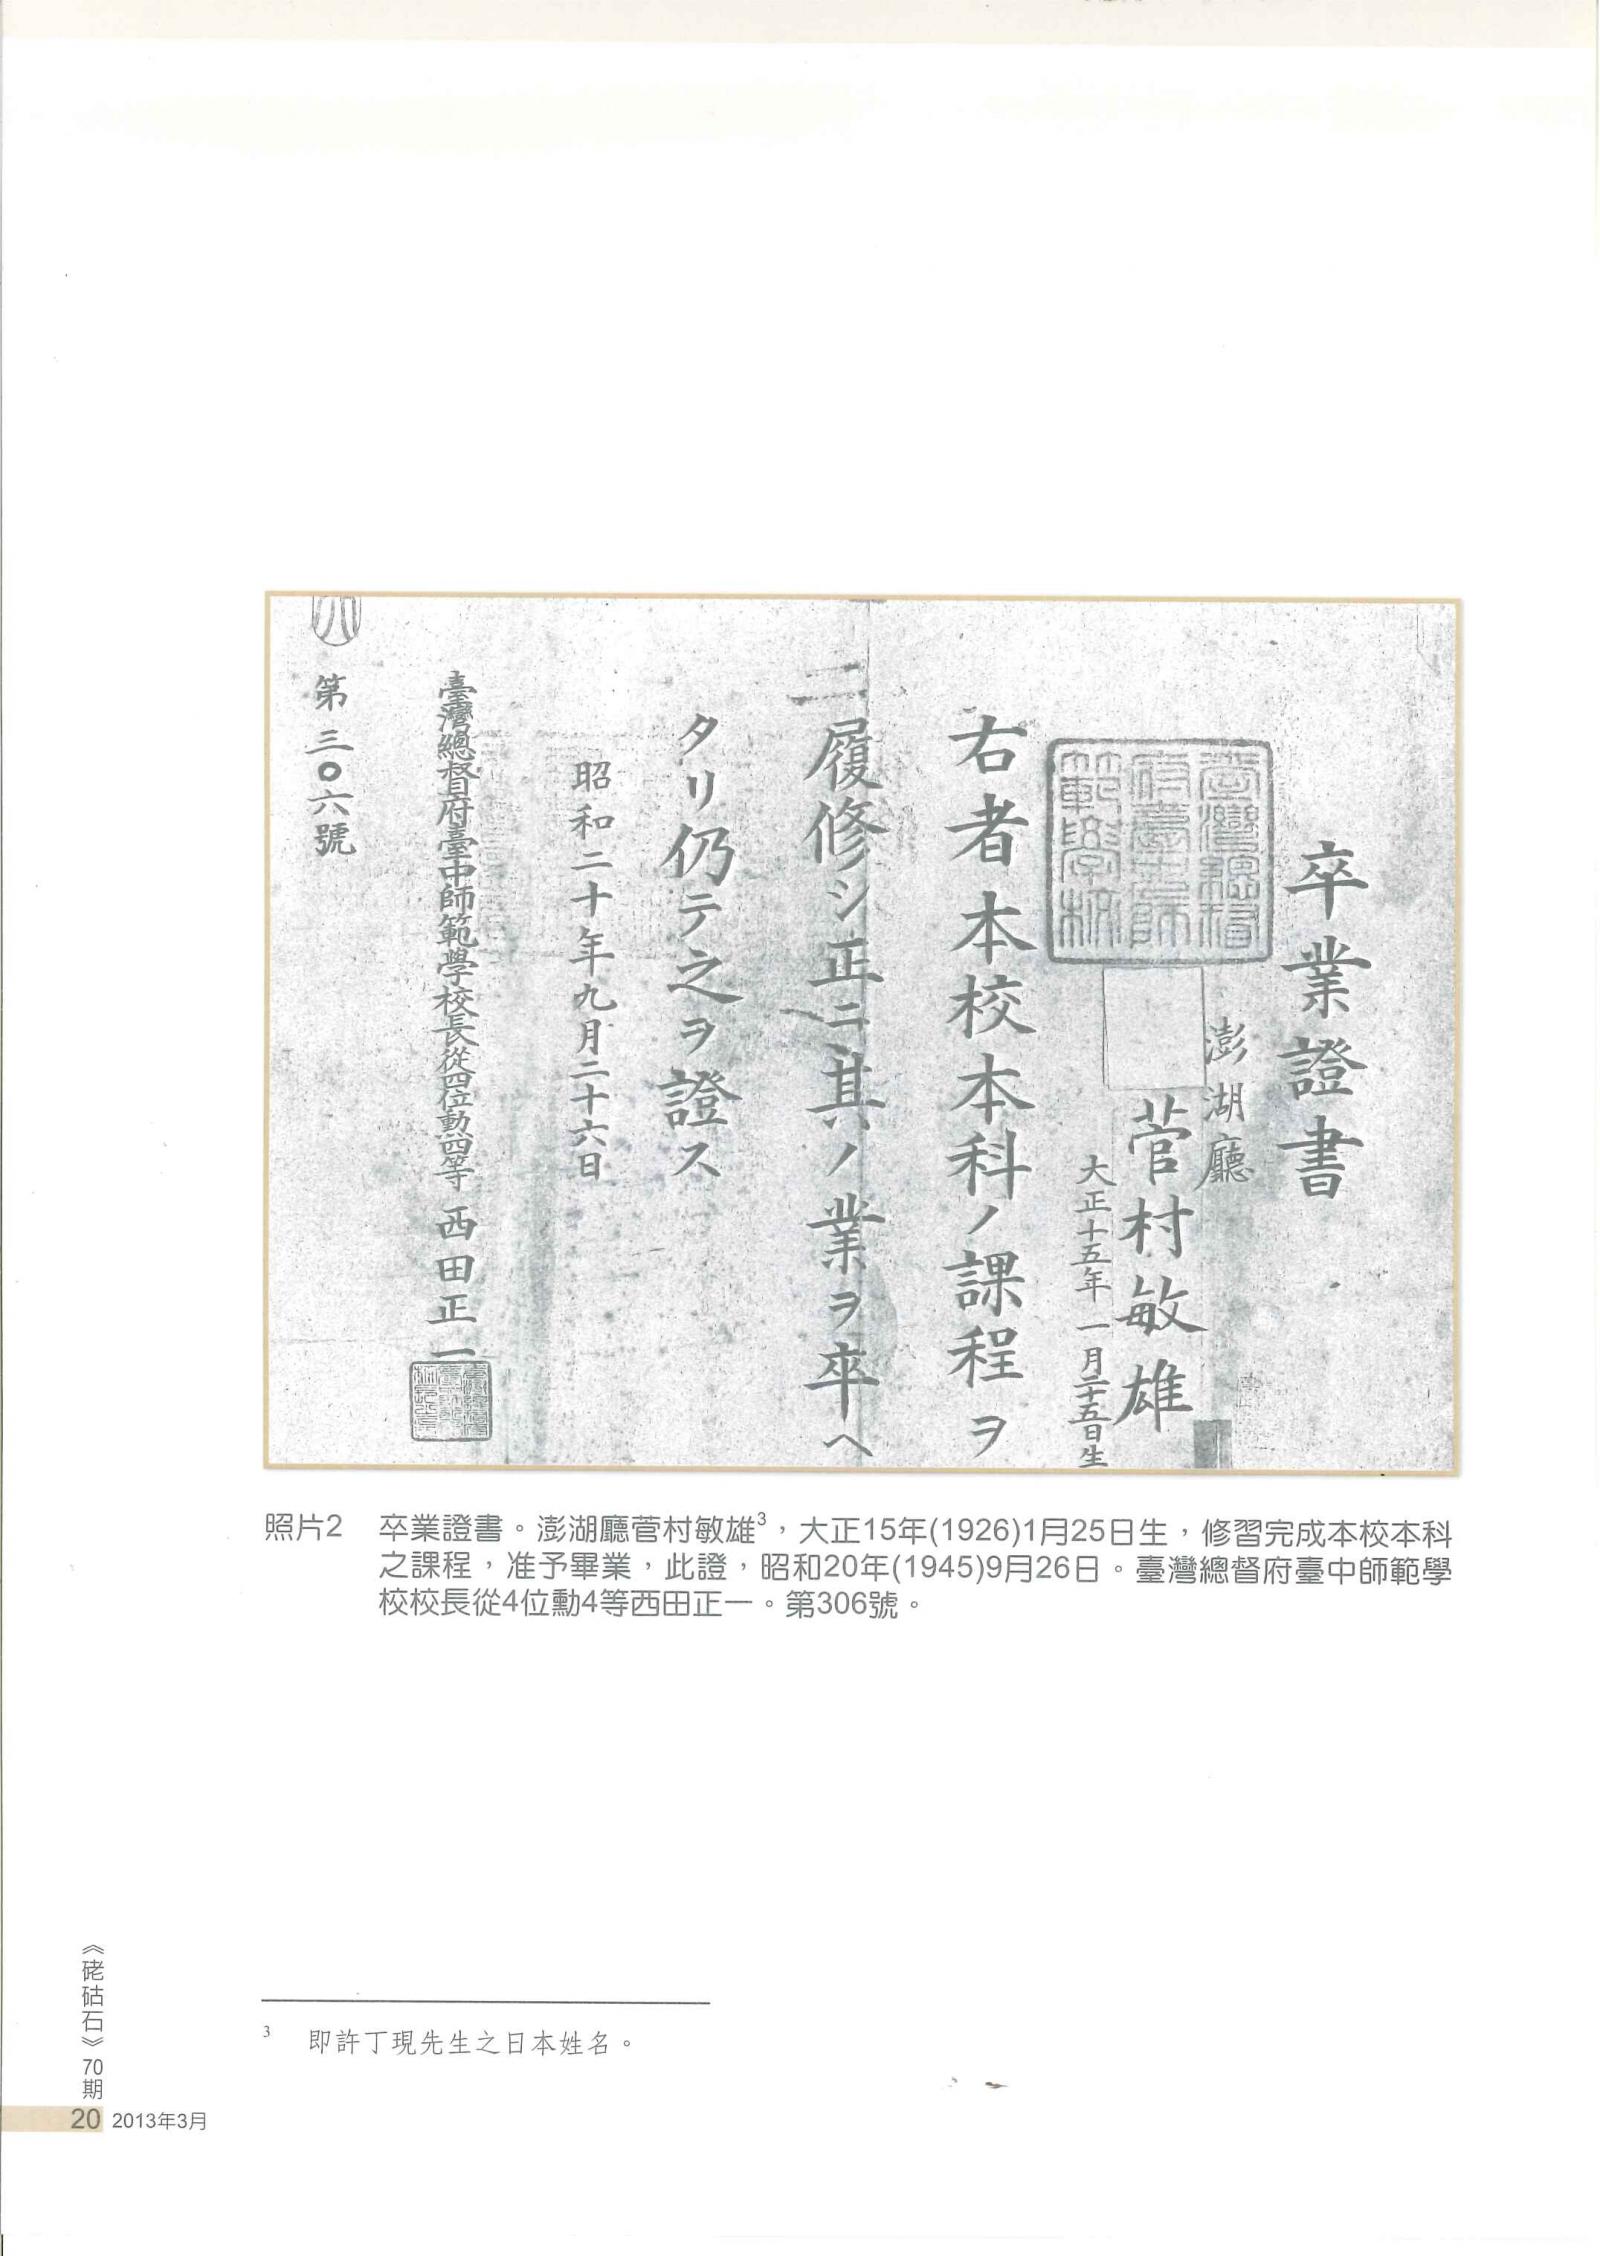 卒業證書
澎湖廳
菅村敏雄
大正十五年一月二十五日生
臺灣總督
府臺中師
範學校
右者本校本科ノ課程ヲ
履修シ正ニ其ノ業ヲ卒ヘ
タリ仍テ之ヲ證ス
昭和二十年九月二十六日
臺灣總督府臺中師範學校長從四位勳四等 西田正一
第三〇六號
照片2 卒業證書。澎湖廳菅村敏雄3，大正15年(1926)1月25日生，修習完成本校本科
之課程，准予畢業，此證，昭和20年(1945)9月26日。臺灣總督府臺中師範學
校校長從4位勳4等西田正一。第306號。
3 即許丁現先生之日本姓名。
《硓𥑮石》70期
20 2013年3月